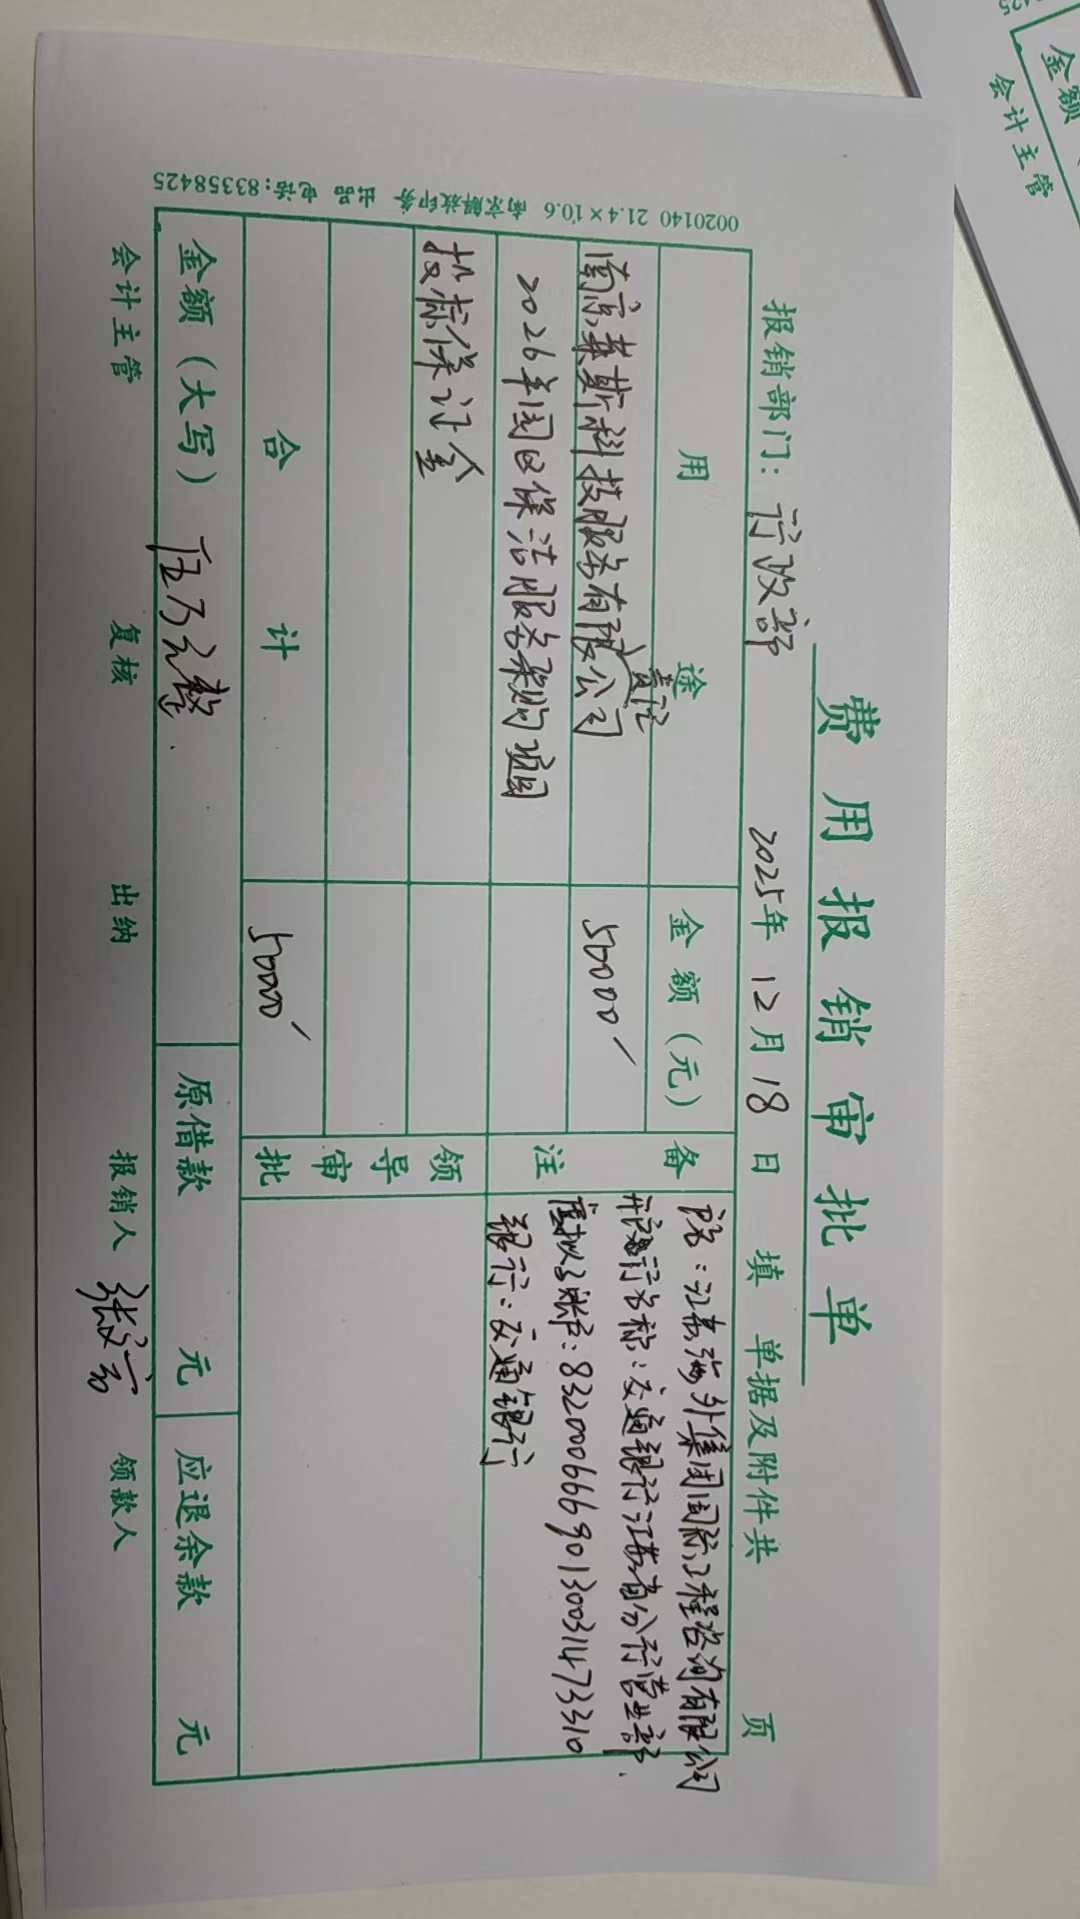 费用报销审批单
报销部门：行政部 2025年 12月 18日 填 单据及附件共 页
用途 金额（元） 备注
南京莱斯科技服务有限责任公司 50000
2026年园区保洁服务采购项目
投标保证金
户名：江苏海外集团国际工程咨询有限公司
开户行名称：交通银行江苏省分行营业部
虚拟子账户：8320006669013003147 3310
银行：交通银行
领导审批
合计 50000
金额（大写） 伍万元整 原借款 元 应退余款 元
会计主管 复核 出纳 报销人 领款人
0020140 21.4×10.6 南京解放印务 出品 电话:83358425
金额
会计主管